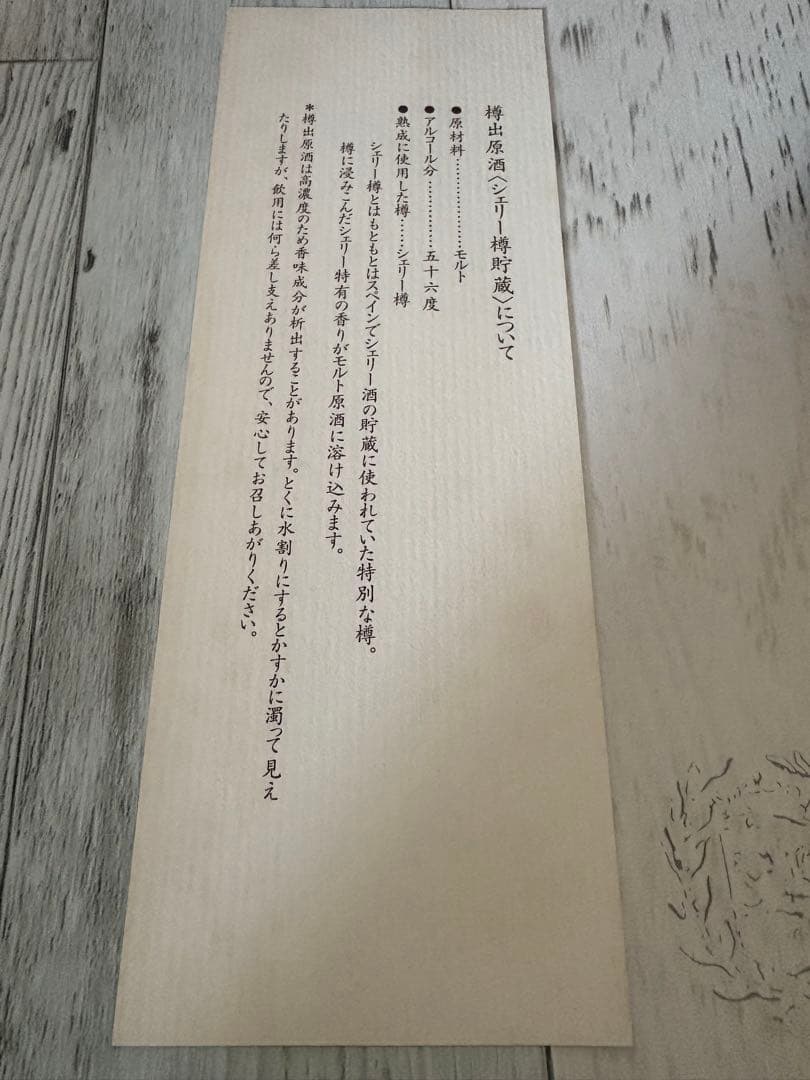 樽出原酒〈シェリー樽貯蔵〉について
●原材料…………………モルト
●アルコール分……………五十六度
●熟成に使用した樽……シェリー樽
シェリー樽とはもともとはスペインでシェリー酒の貯蔵に使われていた特別な樽。
樽に浸みこんだシェリー特有の香りがモルト原酒に溶け込みます。
*樽出原酒は高濃度のため香味成分が析出することがあります。とくに水割りにするとかすかに濁って見え
たりしますが、飲用には何ら差し支えありませんので、安心してお召しあがりください。